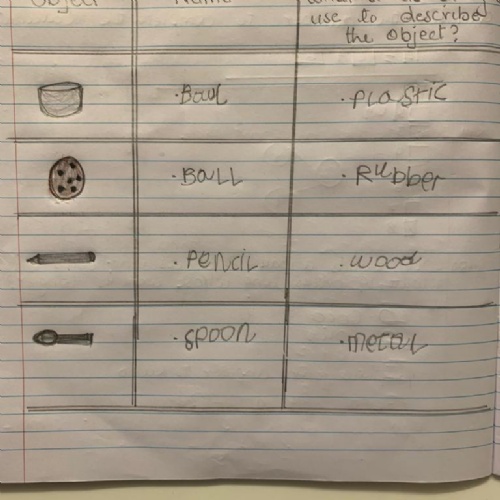 Object Name
use to describe
the object?
·Bowl ·PLaStiC
·BaLL ·Rubber
·Pencil ·wood
·spoon ·metal